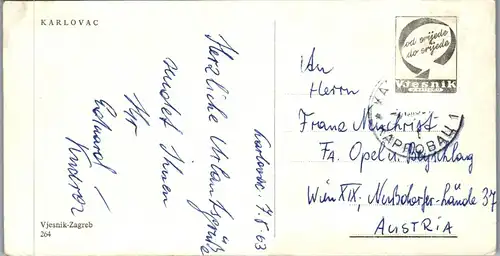 KARLOVAC
Karlovac, 7.8.63
Herzliche Urlaubsgrüße
sendet Ihnen
Ihr
Eduard
Vjesnik-Zagreb
264
od srijede
do srijede
Vjesnik
An
Herrn
Franz
FA. Opel u. Beyschlag
Wien XIX, Nußdorfer-Lände 37
AUSTRIA